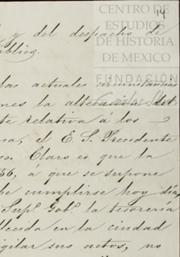 14
CENTRO DE
ESTUDIOS
DE HISTORIA
DE MEXICO
FUNDACIÓN
y del despacho de
las actuales circunstancias
nes la alteracion del
te relativa a los
el E. S. Presidente
so. Claro es que la
56, á que se supone
be cumplirse hoy dia
Sup.º Gob.º la tesorería
blecida en la ciudad
igilar sus actos, no